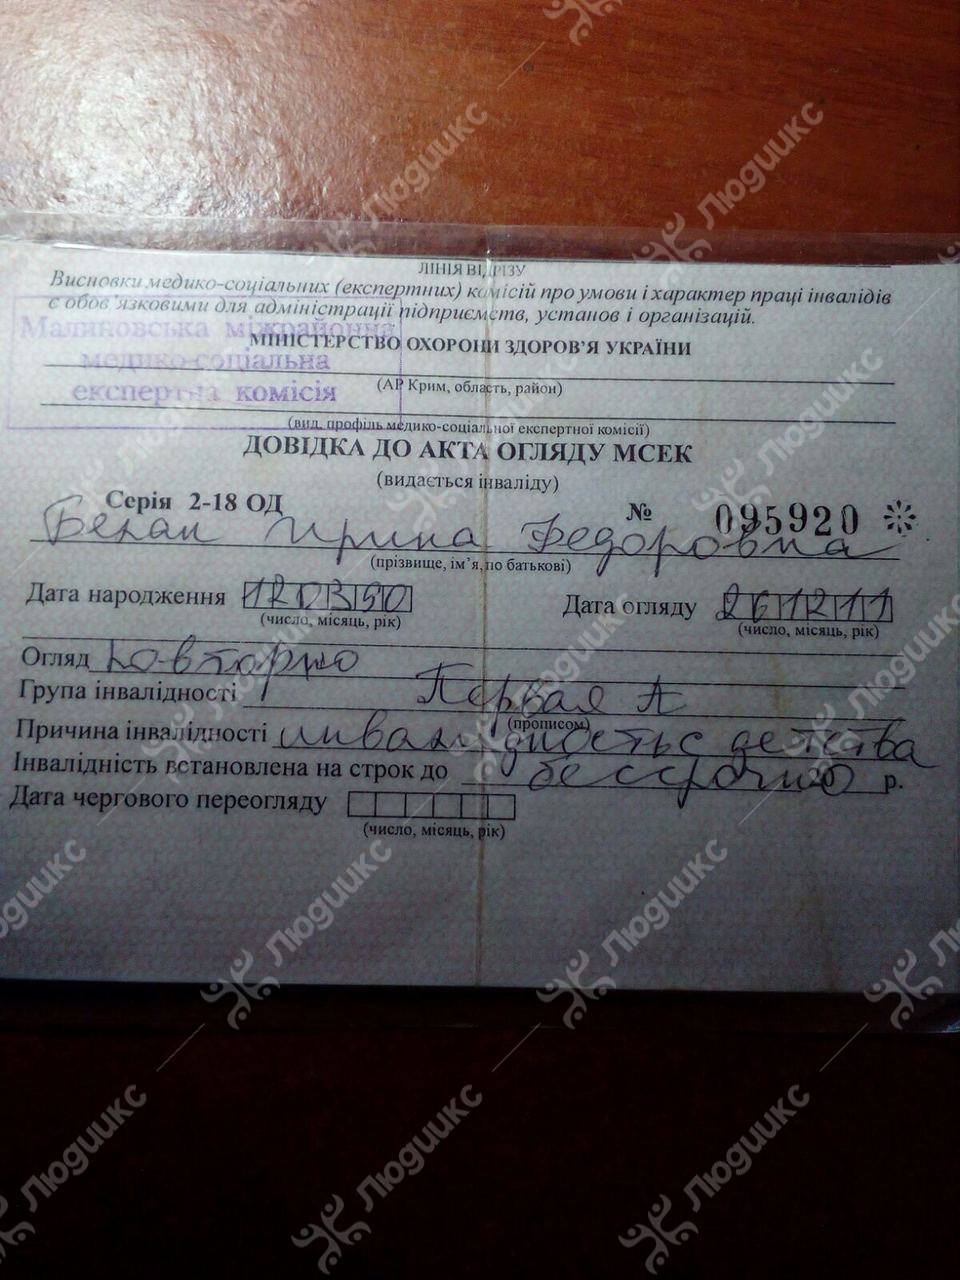 ЛІНІЯ ВІДРІЗУ
Висновки медико-соціальних (експертних) комісій про умови і характер праці інвалідів
є обов'язковими для адміністрації підприємств, установ і організацій.
Малиновська міжрайонна
медико-соціальна
експертна комісія
МІНІСТЕРСТВО ОХОРОНИ ЗДОРОВ'Я УКРАЇНИ
(АР Крим, область, район)
(вид, профіль медико-соціальної експертної комісії)
ДОВІДКА ДО АКТА ОГЛЯДУ МСЕК
(видається інваліду)
Серія 2-18 ОД № 095920
Ирина Федоровна
(прізвище, ім'я, по батькові)
Дата народження 120390 Дата огляду 261211
(число, місяць, рік) (число, місяць, рік)
Огляд повторно
Група інвалідності Первая А
(прописом)
Причина інвалідності инвалидность с детства
Інвалідність встановлена на строк до бессрочно 20 р.
Дата чергового переогляду
(число, місяць, рік)
Людиикс